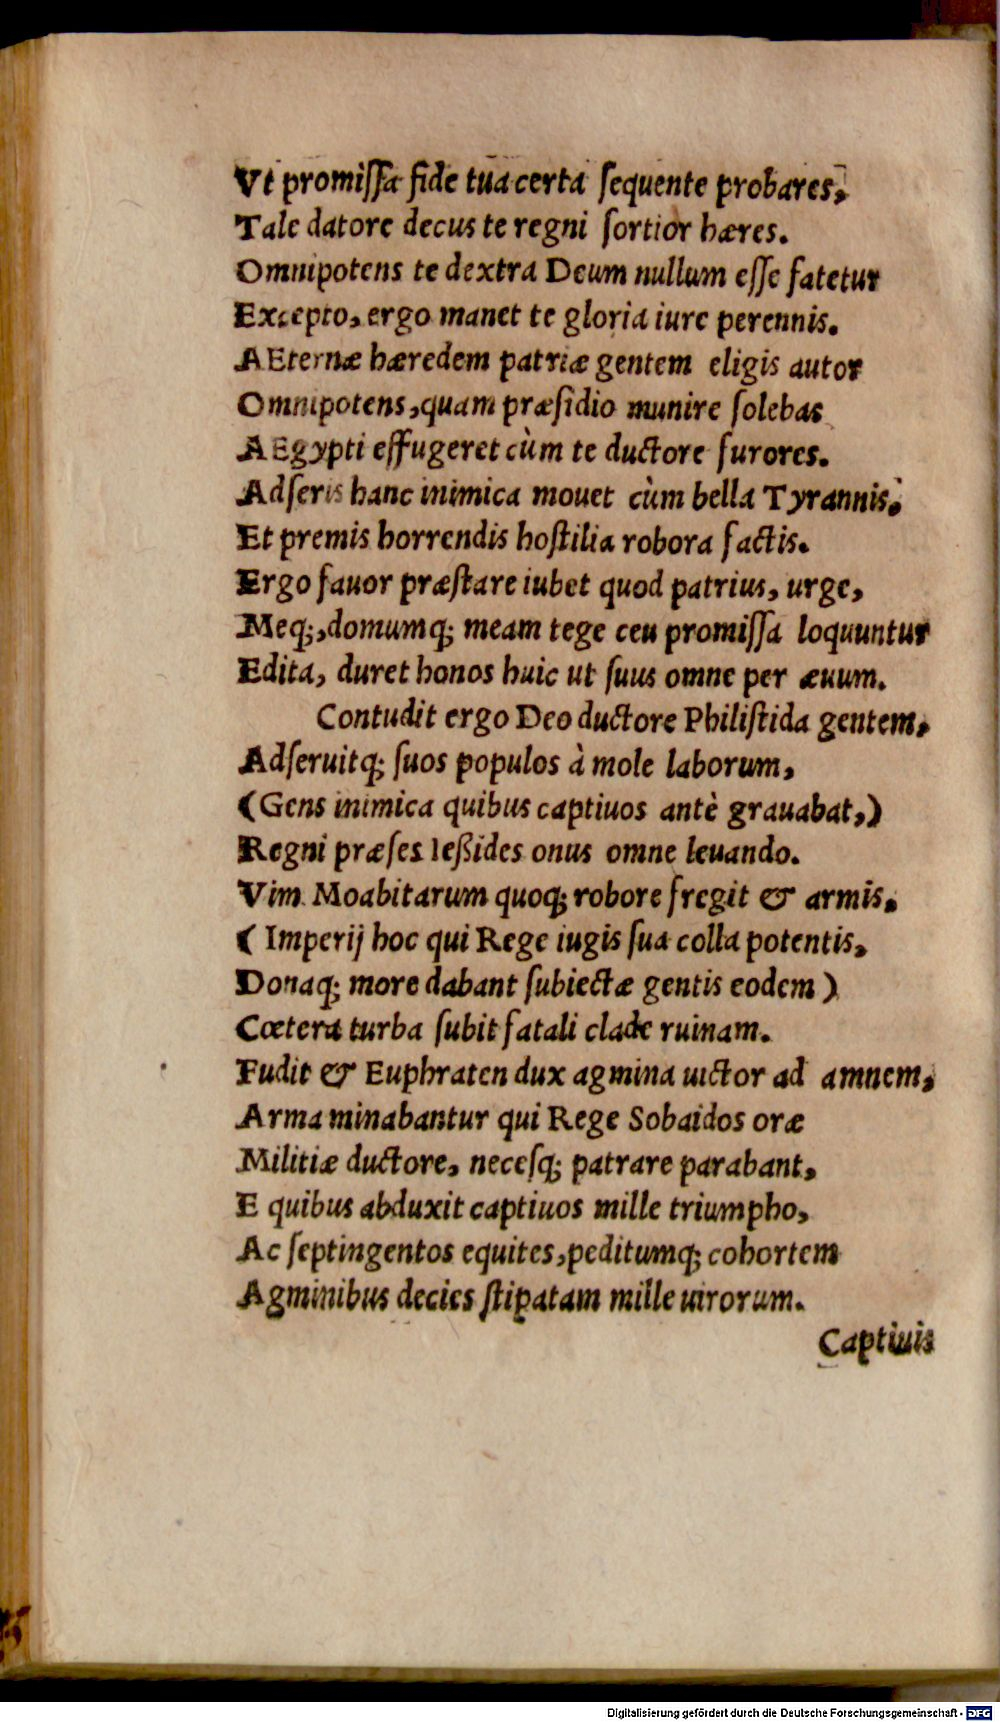 Vt promiſſa fide tua certa ſequente probares,
Tale datore decus te regni ſortior hæres.
Omnipotens te dextra Deum nullum eſſe fatetur
Excepto, ergo manet te gloria iure perennis.
AEternæ hæredem patriæ gentem eligis autor
Omnipotens, quam præſidio munire ſolebas
AEgypti effugeret cùm te ductore furores.
Adſeris hanc inimica mouet cùm bella Tyrannis,
Et premis horrendis hoſtilia robora factis.
Ergo fauor præſtare iubet quod patrius, urge,
Meq;, domumq; meam tege ceu promiſſa loquuntur
Edita, duret honos huic ut ſuus omne per æuum.
Contudit ergo Deo ductore Philiſtida gentem,
Adſeruitq; ſuos populos à mole laborum,
(Gens inimica quibus captiuos antè grauabat,)
Regni præſes Ießides onus omne leuando.
Vim Moabitarum quoq; robore fregit & armis.
( Imperij hoc qui Rege iugis ſua colla potentis,
Donaq; more dabant ſubiectæ gentis eodem )
Cœtera turba ſubit fatali clade ruinam.
Fudit & Euphraten dux agmina uictor ad amnem,
Arma minabantur qui Rege Sobaidos oræ
Militiæ ductore, neceſq; patrare parabant,
E quibus abduxit captiuos mille triumpho,
Ac ſeptingentos equites, peditumq; cohortem
Agminibus decies ſtipatam mille uirorum.
Captiuis
Digitalisierung gefördert durch die Deutsche Forschungsgemeinschaft - DFG